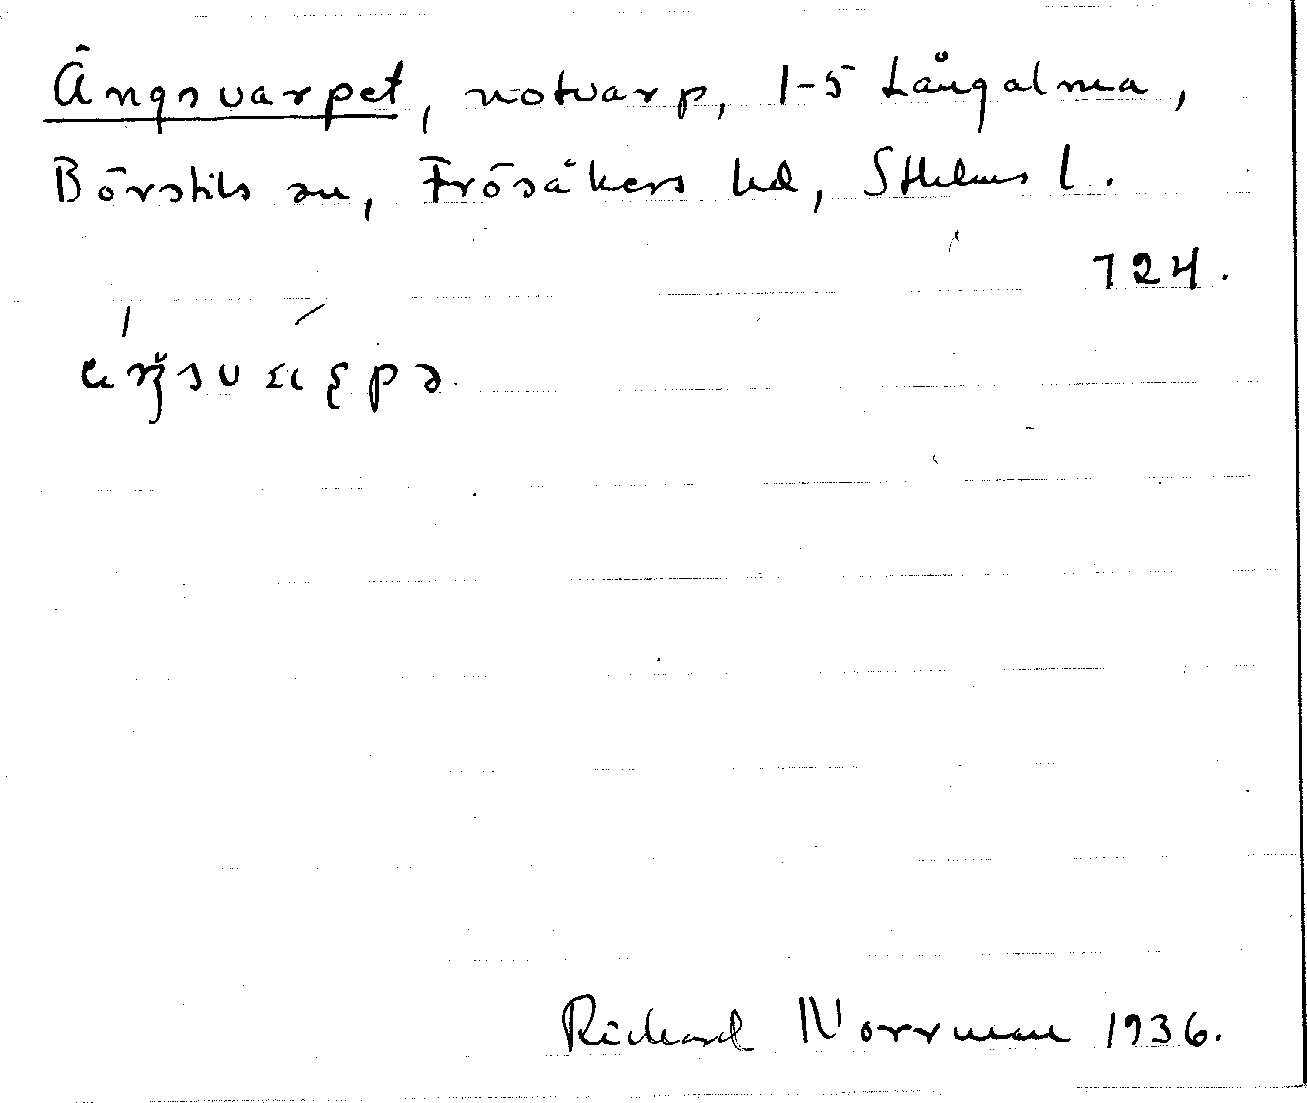 Ängsvarpet, notvarp, 1-5 Långalma,
Börstils sn, Frösåkers hd, Sthlms l.
724.
Richard Norrman 1936.